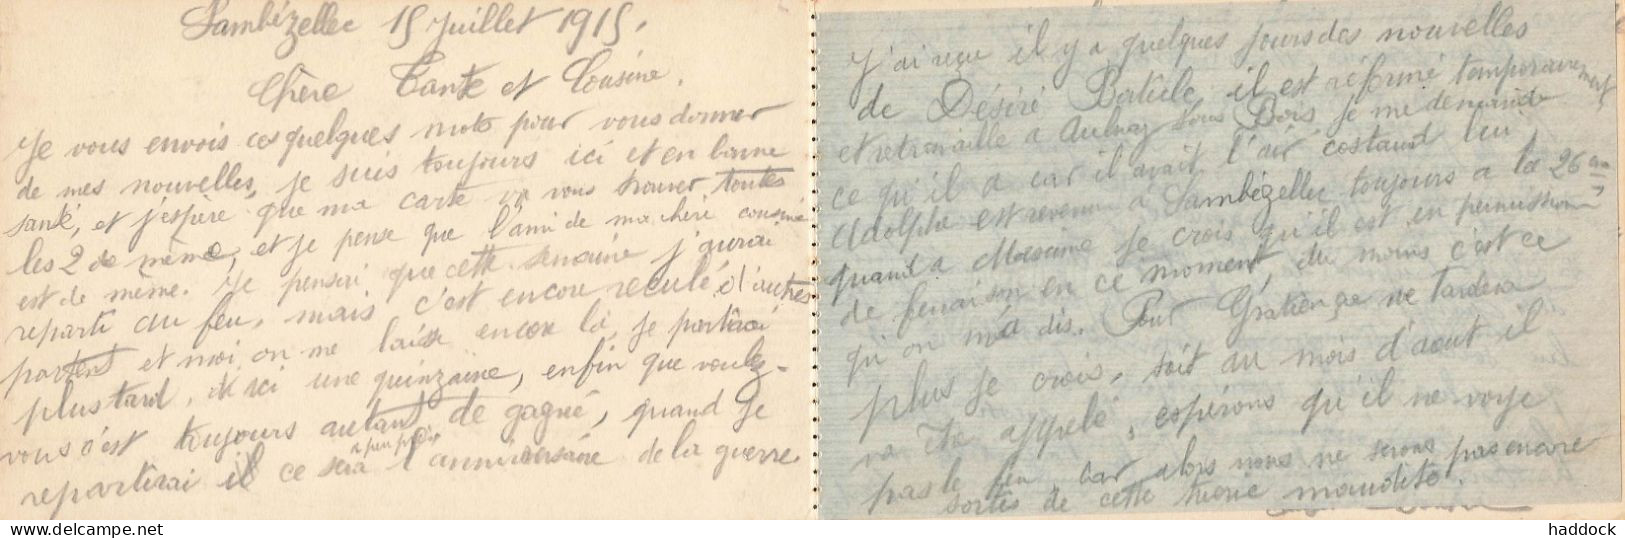 Lambézellec 15 Juillet 1915.
Chère Tante et Cousine.
Je vous envois ces quelques mots pour vous donner
de mes nouvelles, je suis toujours ici et en bonne
santé, et j'espère que ma carte va vous trouver toutes
les 2 de même, et je pense que l'ami de ma chère cousine
est de même. Je pensai que cette semaine j'aurai
reparti au feu, mais c'est encore reculé, d'autres
partent et moi on me laisse encore là, je partirai
plus tard, d'ici une quinzaine, enfin que voulez-
vous c'est toujours autant de gagné, quand je
repartirai ce sera à peu près l'anniversaire de la guerre.
J'ai reçu il y a quelques jours des nouvelles
de Désiré il est réformé temporairement
et retravaille à Aulnay sous Bois je me demande
ce qu'il a car il avait l'air costaud lui
Adolphe est revenu à Lambézellec toujours a la 26 em
quand a Maxime je crois qu'il est en permission
de fenaison en ce moment, du moins c'est ce
qu'on m'a dis. Pour Gratien ça ne tardera
plus je crois, soit au mois d'aout il
va être appelé, espérons qu'il ne voye
pas le feu, car alors nous ne serons pas encore
sortis de cette triste maudite.
haddock